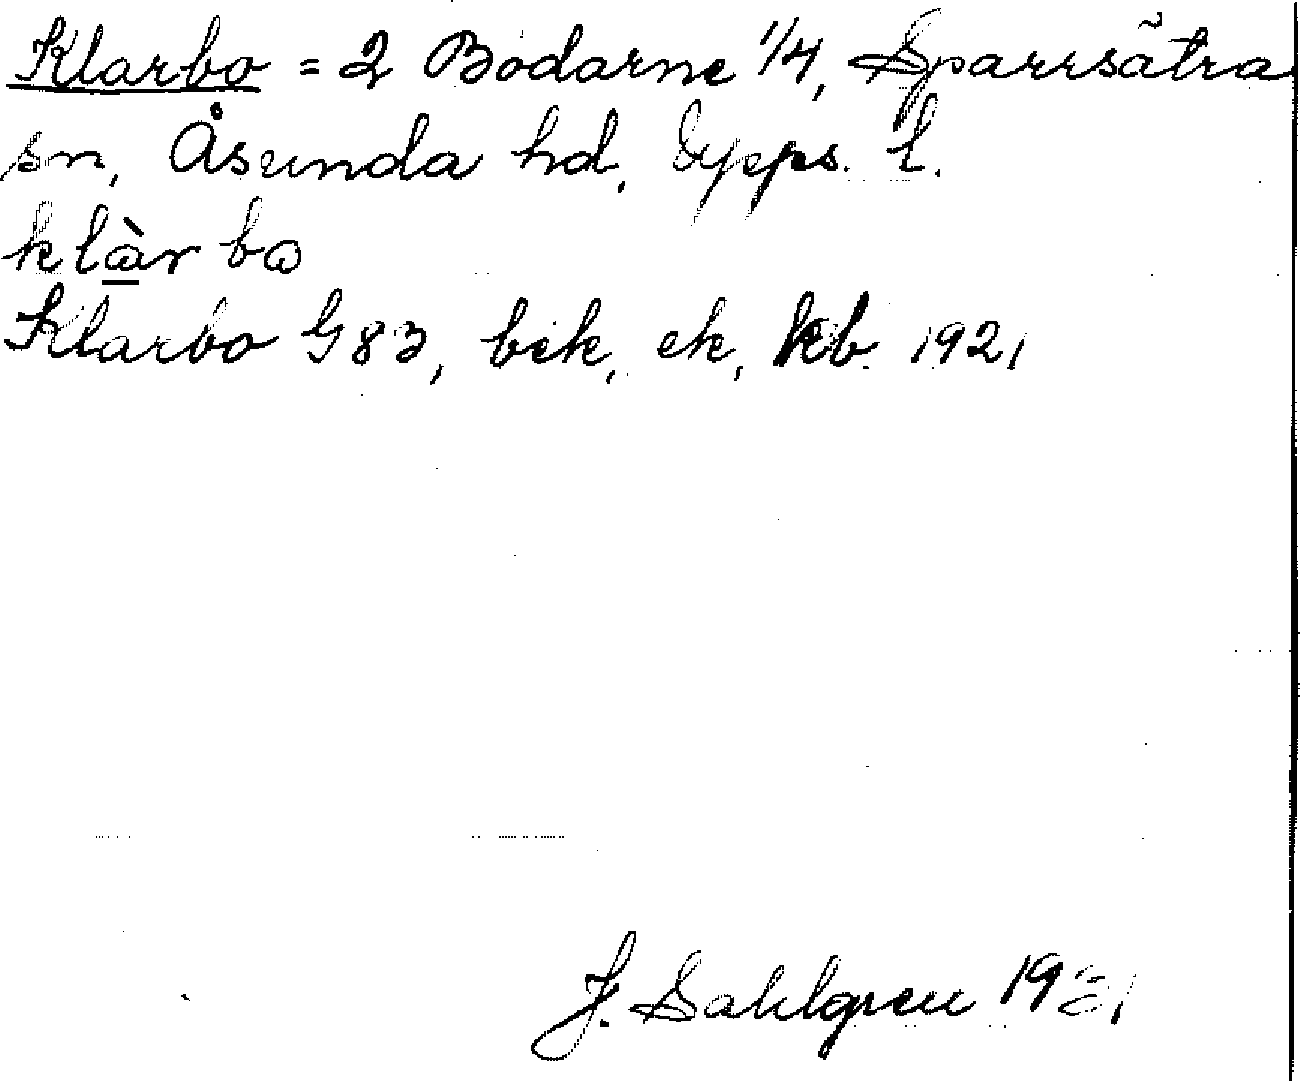 Klarbo = 2 Bodarne 1/4, Sparrsätra
sn, Åsunda hd, Upps. l.
klàr bω
Klarbo G83, bek, ek, kb 1921
J. Sahlgren 1921